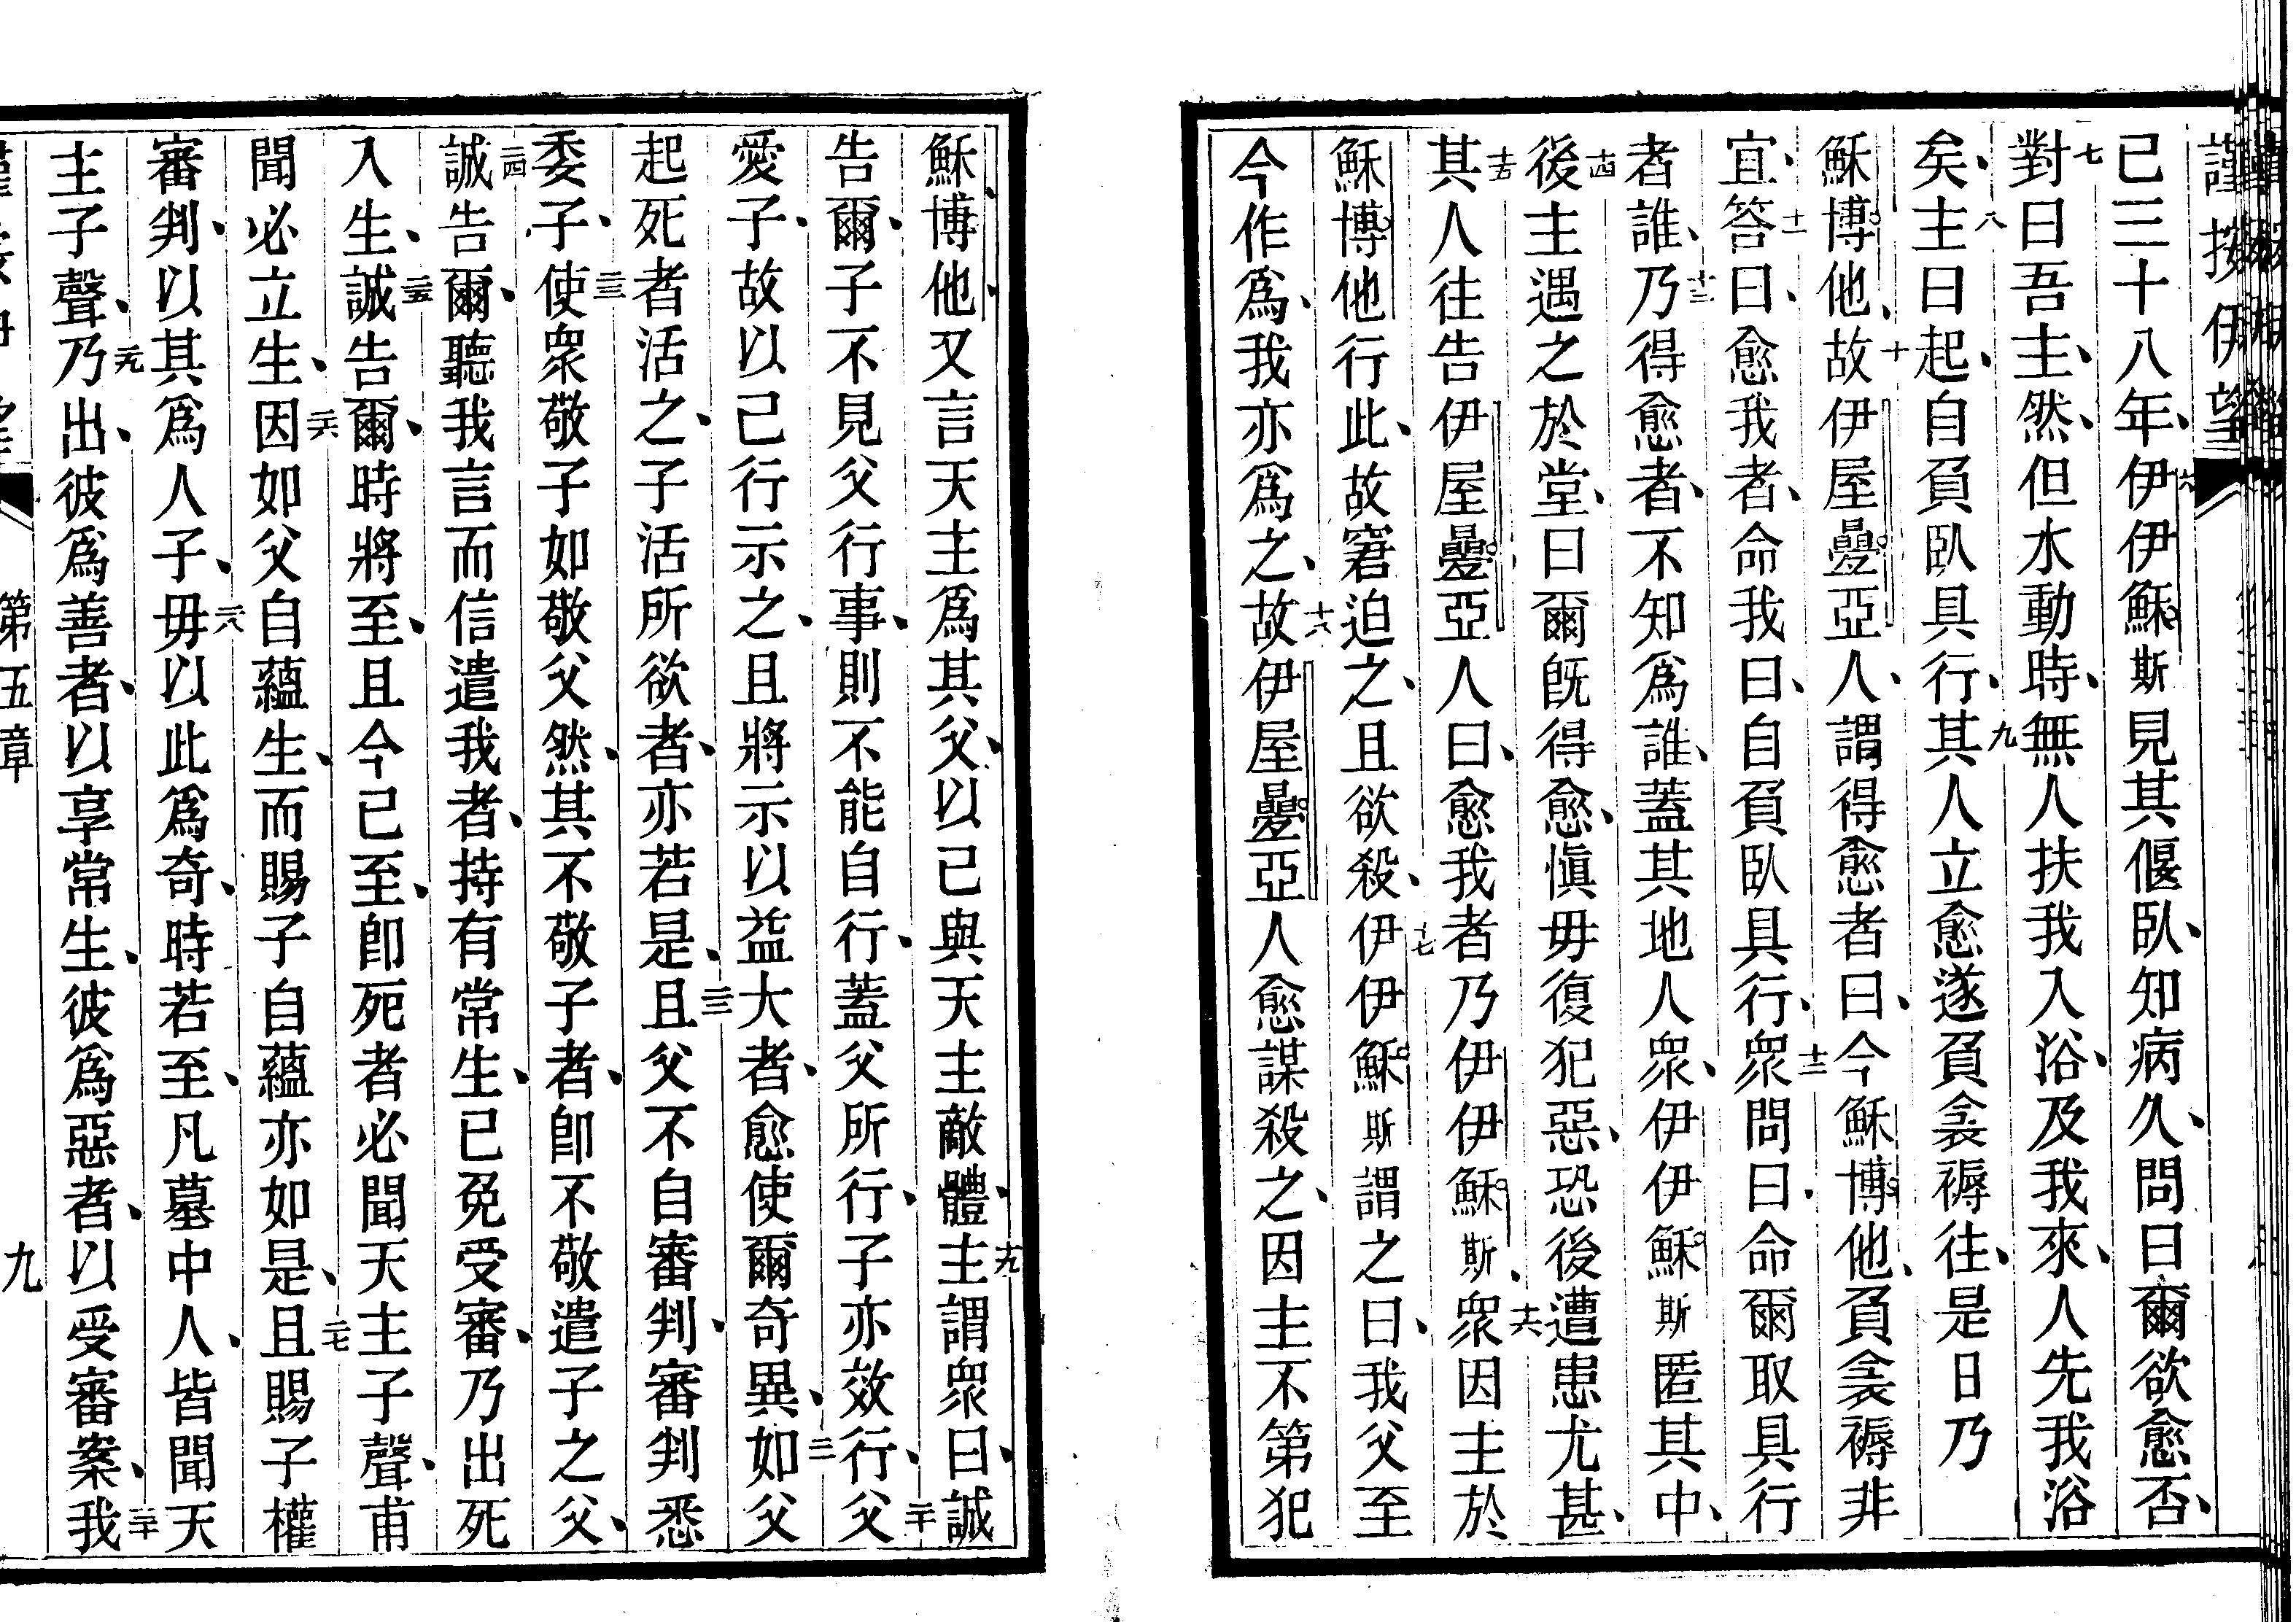 謹按伊望
已三十八年、六伊伊穌斯見其偃臥、知病久、問曰爾欲愈否、
七對曰吾主、然、但水動時、無人扶我入浴、及我來、人先我浴
矣、八主曰起、自負臥具行、九其人立愈遂負衾褥往、是日乃
穌博他、十故伊屋疊亞人、謂得愈者曰、今穌博他、負衾褥非
宜、十一答曰、愈我者、命我曰、自負臥具行、十二衆問曰、命爾取具行
者誰、十三乃得愈者、不知爲誰、蓋其地人衆、伊伊穌斯匿其中、
十四後主遇之於堂、曰爾旣得愈、愼毋復犯惡、恐後遭患尤甚、
十五其人往告伊屋疊亞人曰、愈我者乃伊伊穌斯、十六衆因主於
穌博他行此、故窘迫之、且欲殺、十七伊伊穌斯謂之曰、我父至
今作爲、我亦爲之、十八故伊屋疊亞人愈謀殺之、因主不第犯
穌博他、又言天主爲其父、以己與天主敵體、十九主謂衆曰、誠
告爾、子不見父行事、則不能自行、蓋父所行、子亦效行、二十父
愛子、故以己行示之、且將示以益大者、愈使爾奇異、二一如父
起死者活之、子活所欲者、亦若是、二二且父不自審判、審判悉
委子、二三使衆敬子如敬父然、其不敬子者、卽不敬遣子之父、
二四誠告爾、聽我言而信遣我者、持有常生、已免受審、乃出死
入生、二五誠告爾、時將至、且今已至、卽死者必聞天主子聲、甫
聞必立生、二六因如父自蘊生、而賜子自蘊亦如是、二七且賜子權
審判、以其爲人子、二八毋以此爲奇、時若至、凡墓中人、皆聞天
主子聲、二九乃出、彼爲善者、以享常生、彼爲惡者、以受審案、三十我
第五章
九